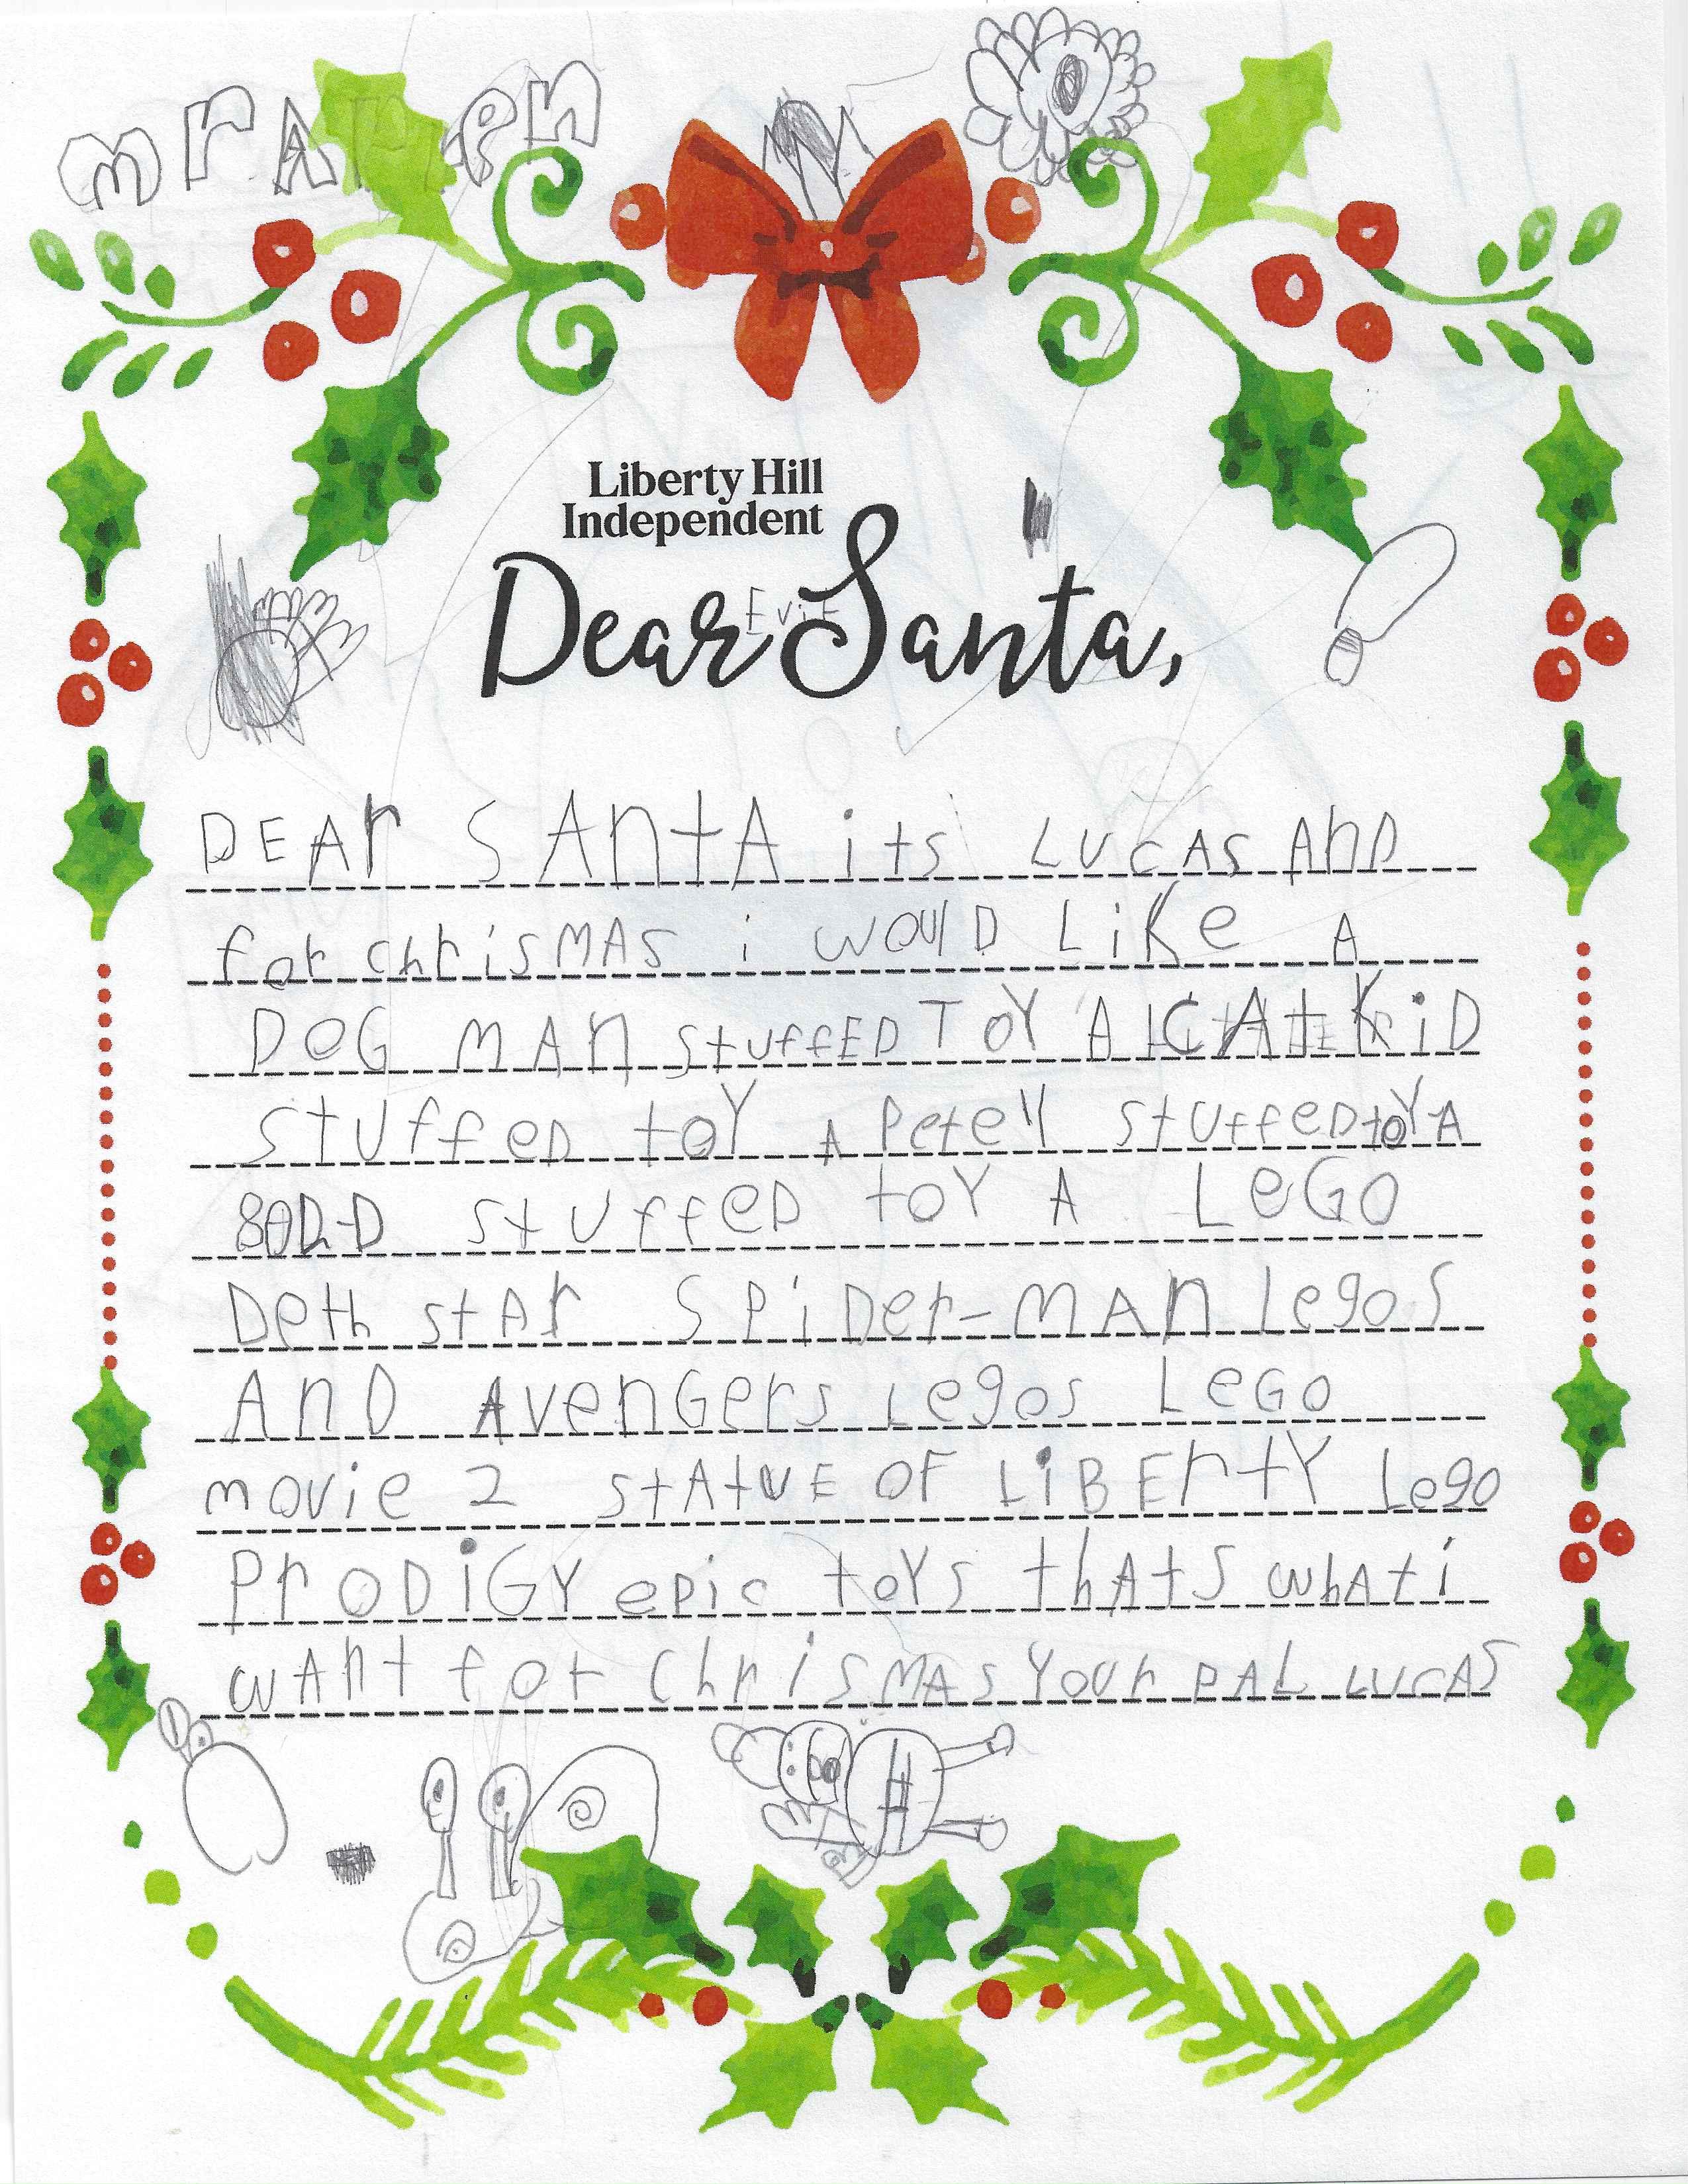 Liberty Hill
Independent
Evie
Dear Santa,
DEAr SAntA its LUCAS AnD
for chrisMAS i WOUlD LiKe A
DOG MAn stuffED TOY A CAt KiD
stuffeD toY A Petey stuffeD toY A
stuffeD toY A LeGO
Deth stAr SPiDer-MAn legos
AnD AvenGers Legos LeGO
movie 2 stAtUE OF LiBErtY Lego
PrODiGY epic toYs thAts whAt i
wAnt for ChrisMAS Your PAL LUCAS